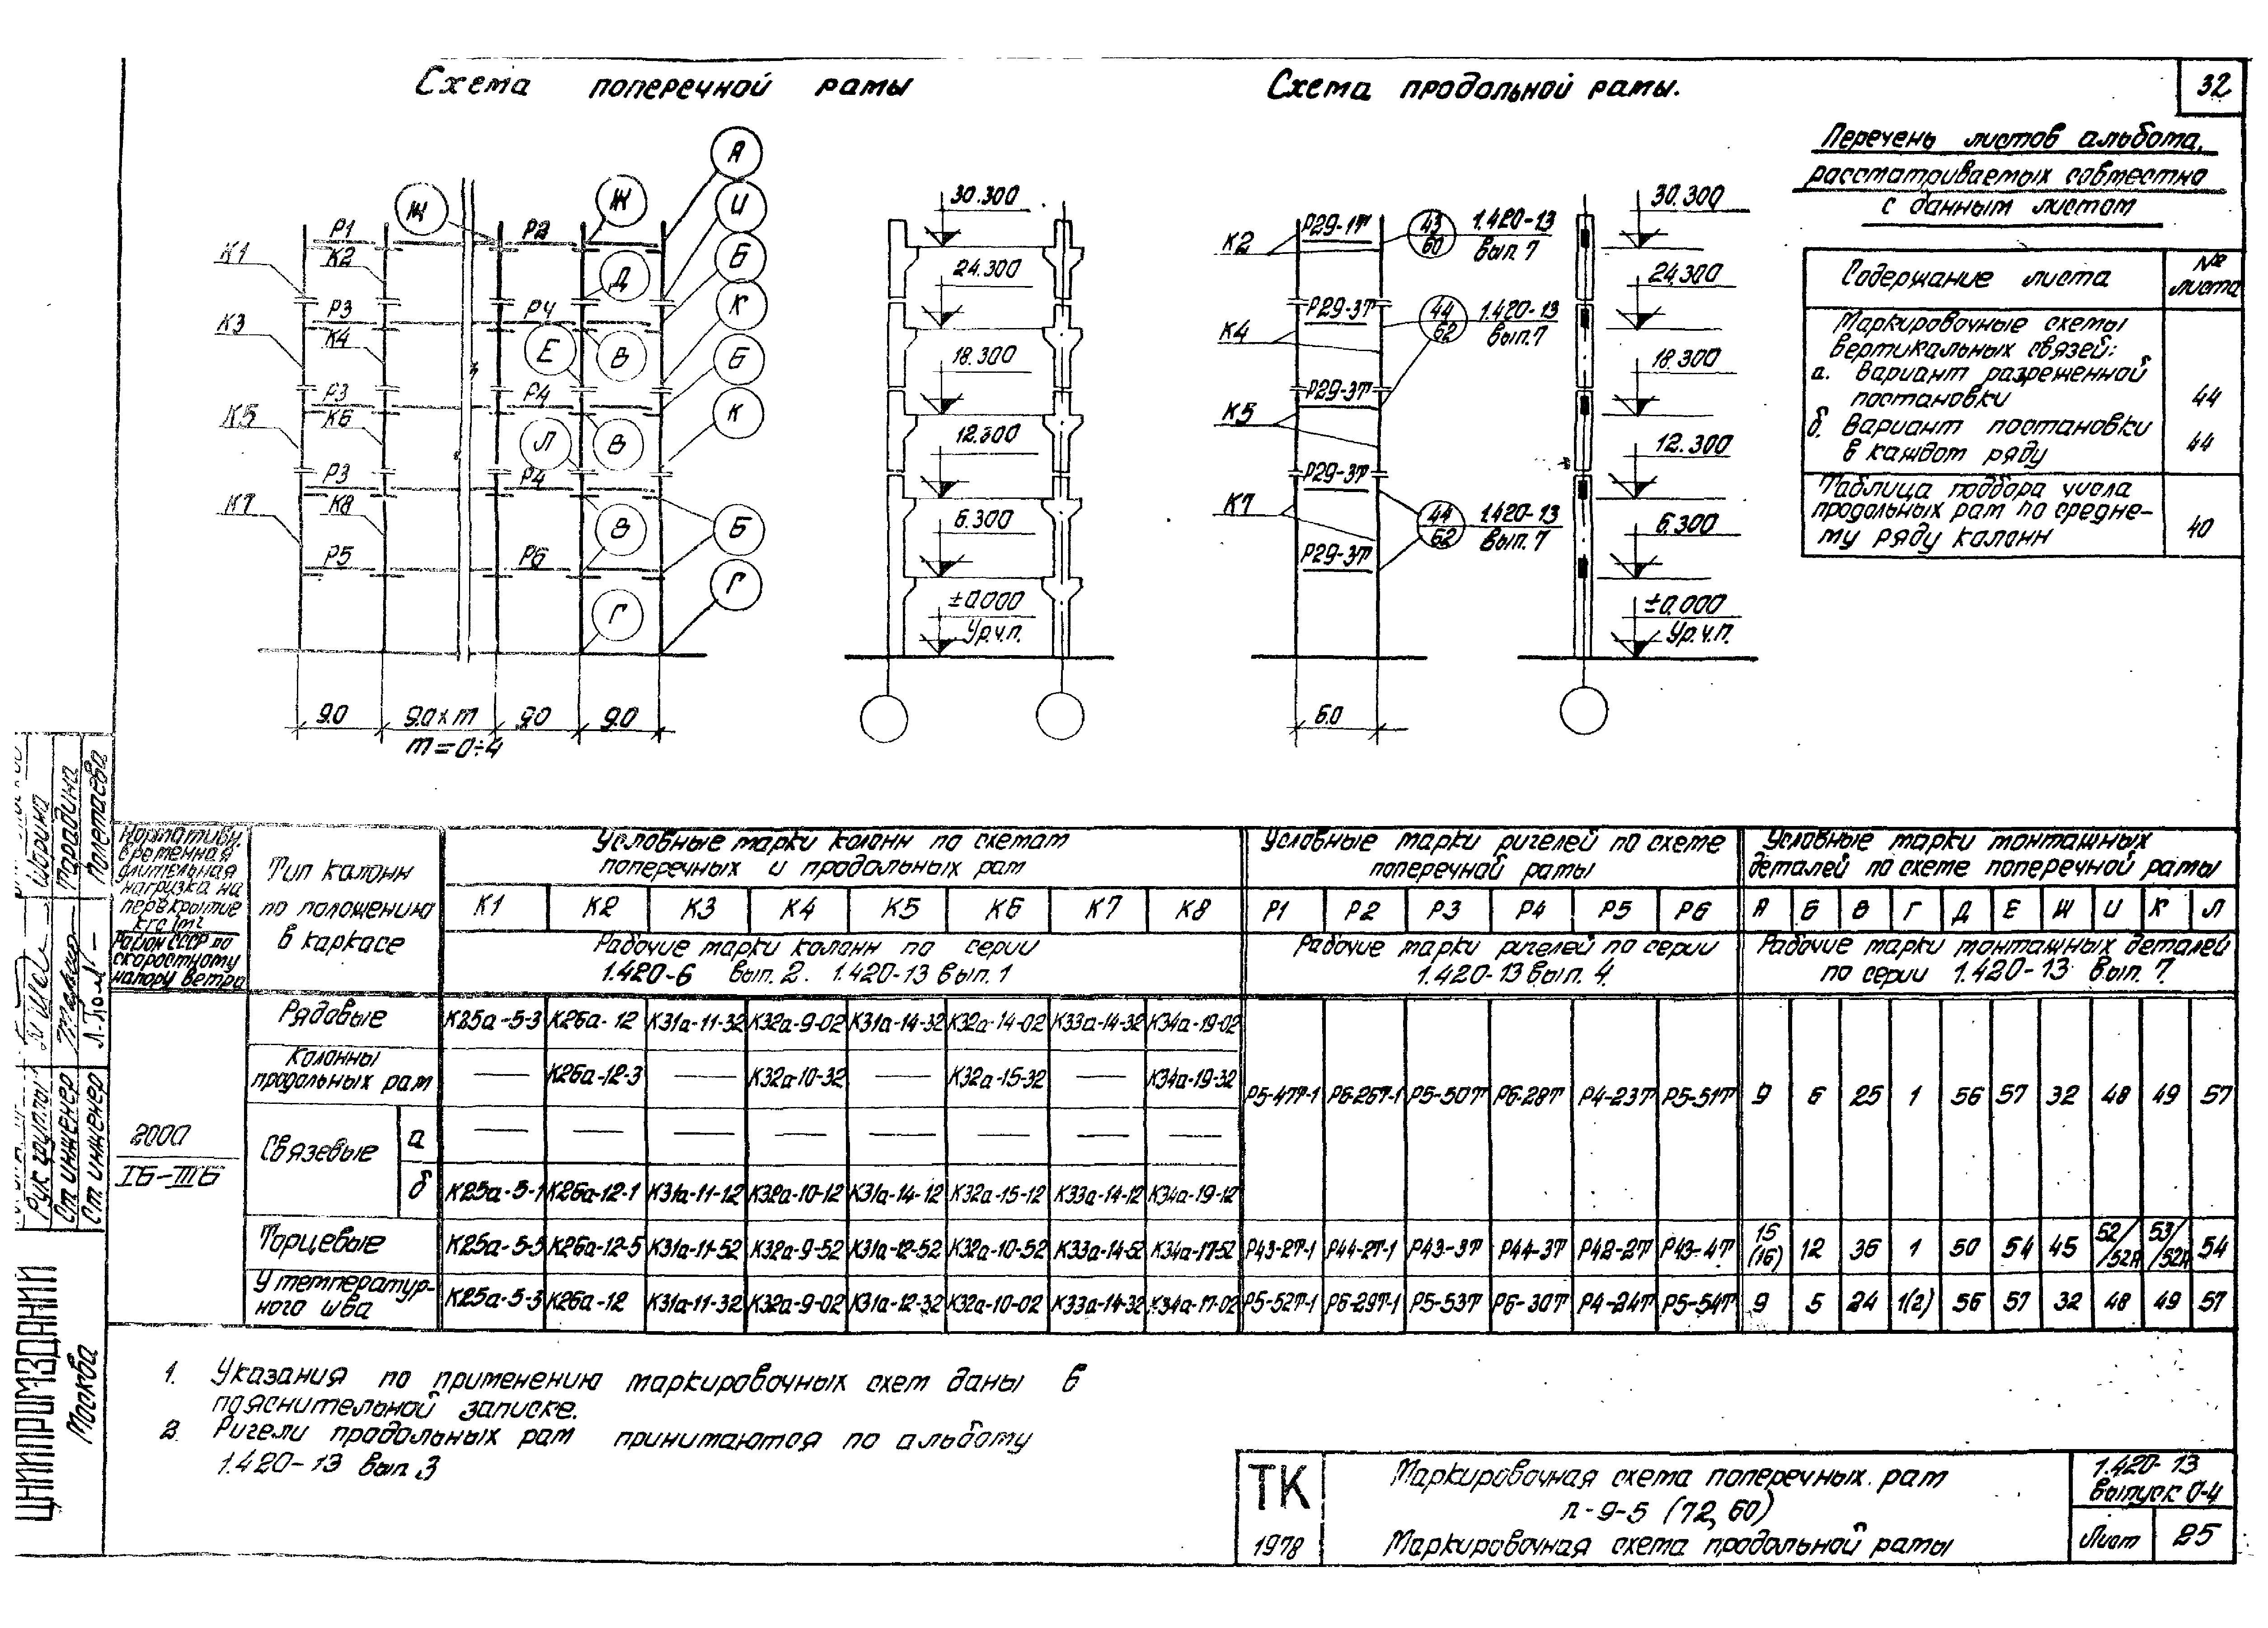 Схема поперечной рамы
Схема продольной рамы.
32
Перечень листов альбома,
рассматриваемых совместно
с данным листом
Содержание листа
№№ листа
Маркировочные схемы
вертикальных связей:
а. Вариант разреженной
постановки
44
б. Вариант постановки
в каждом ряду
44
Таблица подбора числа
продольных рам по средне-
му ряду колонн
40
А
И
Б
К
Б
К
Б
Г
Щ
Ж
Д
Е
В
Л
В
В
Г
Р1
Р2
К1
К2
Р3
Р4
К3
К4
Р3
Р4
К5
К6
Р3
Р4
К7
К8
Р5
Р6
9.0
9.0×m
9.0
9.0
m=0÷4
30.300
24.300
18.300
12.300
6.300
±0.000
Ур.ч.п.
К2
Р29-1т
43
60
1.420-13
вып. 7
К4
Р29-3т
44
62
1.420-13
вып. 7
К5
Р29-3т
К7
Р29-3т
44
62
1.420-13
вып. 7
Р29-3т
6.0
30.300
24.300
18.300
12.300
6.300
±0.000
Ур.ч.п.
Нормативн.
временная
длительная
нагрузка на
перекрытие
кгс/м²
Район СССР по
скоростному
напору ветра
Тип колонн
по положению
в каркасе
Условные марки колонн по схемам
поперечных и продольных рам
Условные марки ригелей по схеме
поперечной рамы
Условные марки монтажных
деталей по схеме поперечной рамы
К1 К2 К3 К4 К5 К6 К7 К8 Р1 Р2 Р3 Р4 Р5 Р6 А Б В Г Д Е Ж И К Л
Рабочие марки колонн по серии
1.420-6 вып. 2. 1.420-13 вып. 1
Рабочие марки ригелей по серии
1.420-13 вып. 4.
Рабочие марки монтажных деталей
по серии 1.420-13 вып. 7
2000
IБ-IIIБ
Рядовые К25а-5-3 К26а-12 К31а-11-32 К32а-9-02 К31а-14-32 К32а-14-02 К33а-14-32 К34а-19-02
Колонны
продольных рам — К26а-12-3 — К32а-10-32 — К32а-15-32 — К34а-19-32
Р5-47т-1 Р6-26т-1 Р5-50т Р6-28т Р4-23т Р5-51т 9 6 25 1 56 57 32 48 49 57
Связевые
а — — — — — — — —
б К25а-5-1 К26а-12-1 К31а-11-12 К32а-10-12 К31а-14-12 К32а-15-12 К33а-14-12 К34а-19-12
Торцевые К25а-5-5 К26а-12-5 К31а-11-52 К32а-9-52 К31а-12-52 К32а-10-52 К33а-14-52 К34а-17-52 Р43-2т-1 Р44-2т-1 Р43-3т Р44-3т Р42-2т Р43-4т 15 (16) 12 36 1 50 54 45 52/52А 53/52А 54
У температур-
ного шва К25а-5-3 К26а-12 К31а-11-32 К32а-9-02 К31а-12-32 К32а-10-02 К33а-14-32 К34а-17-02 Р5-52т-1 Р6-29т-1 Р5-53т Р6-30т Р4-24т Р5-54т 9 5 24 1(2) 56 57 32 48 49 57
1. Указания по применению маркировочных схем даны в
пояснительной записке.
2. Ригели продольных рам принимаются по альбому
1.420-13 вып. 3
ТК
1978
Маркировочная схема поперечных рам
п-9-5 (72, 60)
Маркировочная схема продольной рамы
1.420-13
выпуск 0-4
Лист
25
ЦНИИПРОМЗДАНИЙ
Москва
Рук. группы
Шорина
Ст инженер
Тарадина
Ст инженер
Полетаева